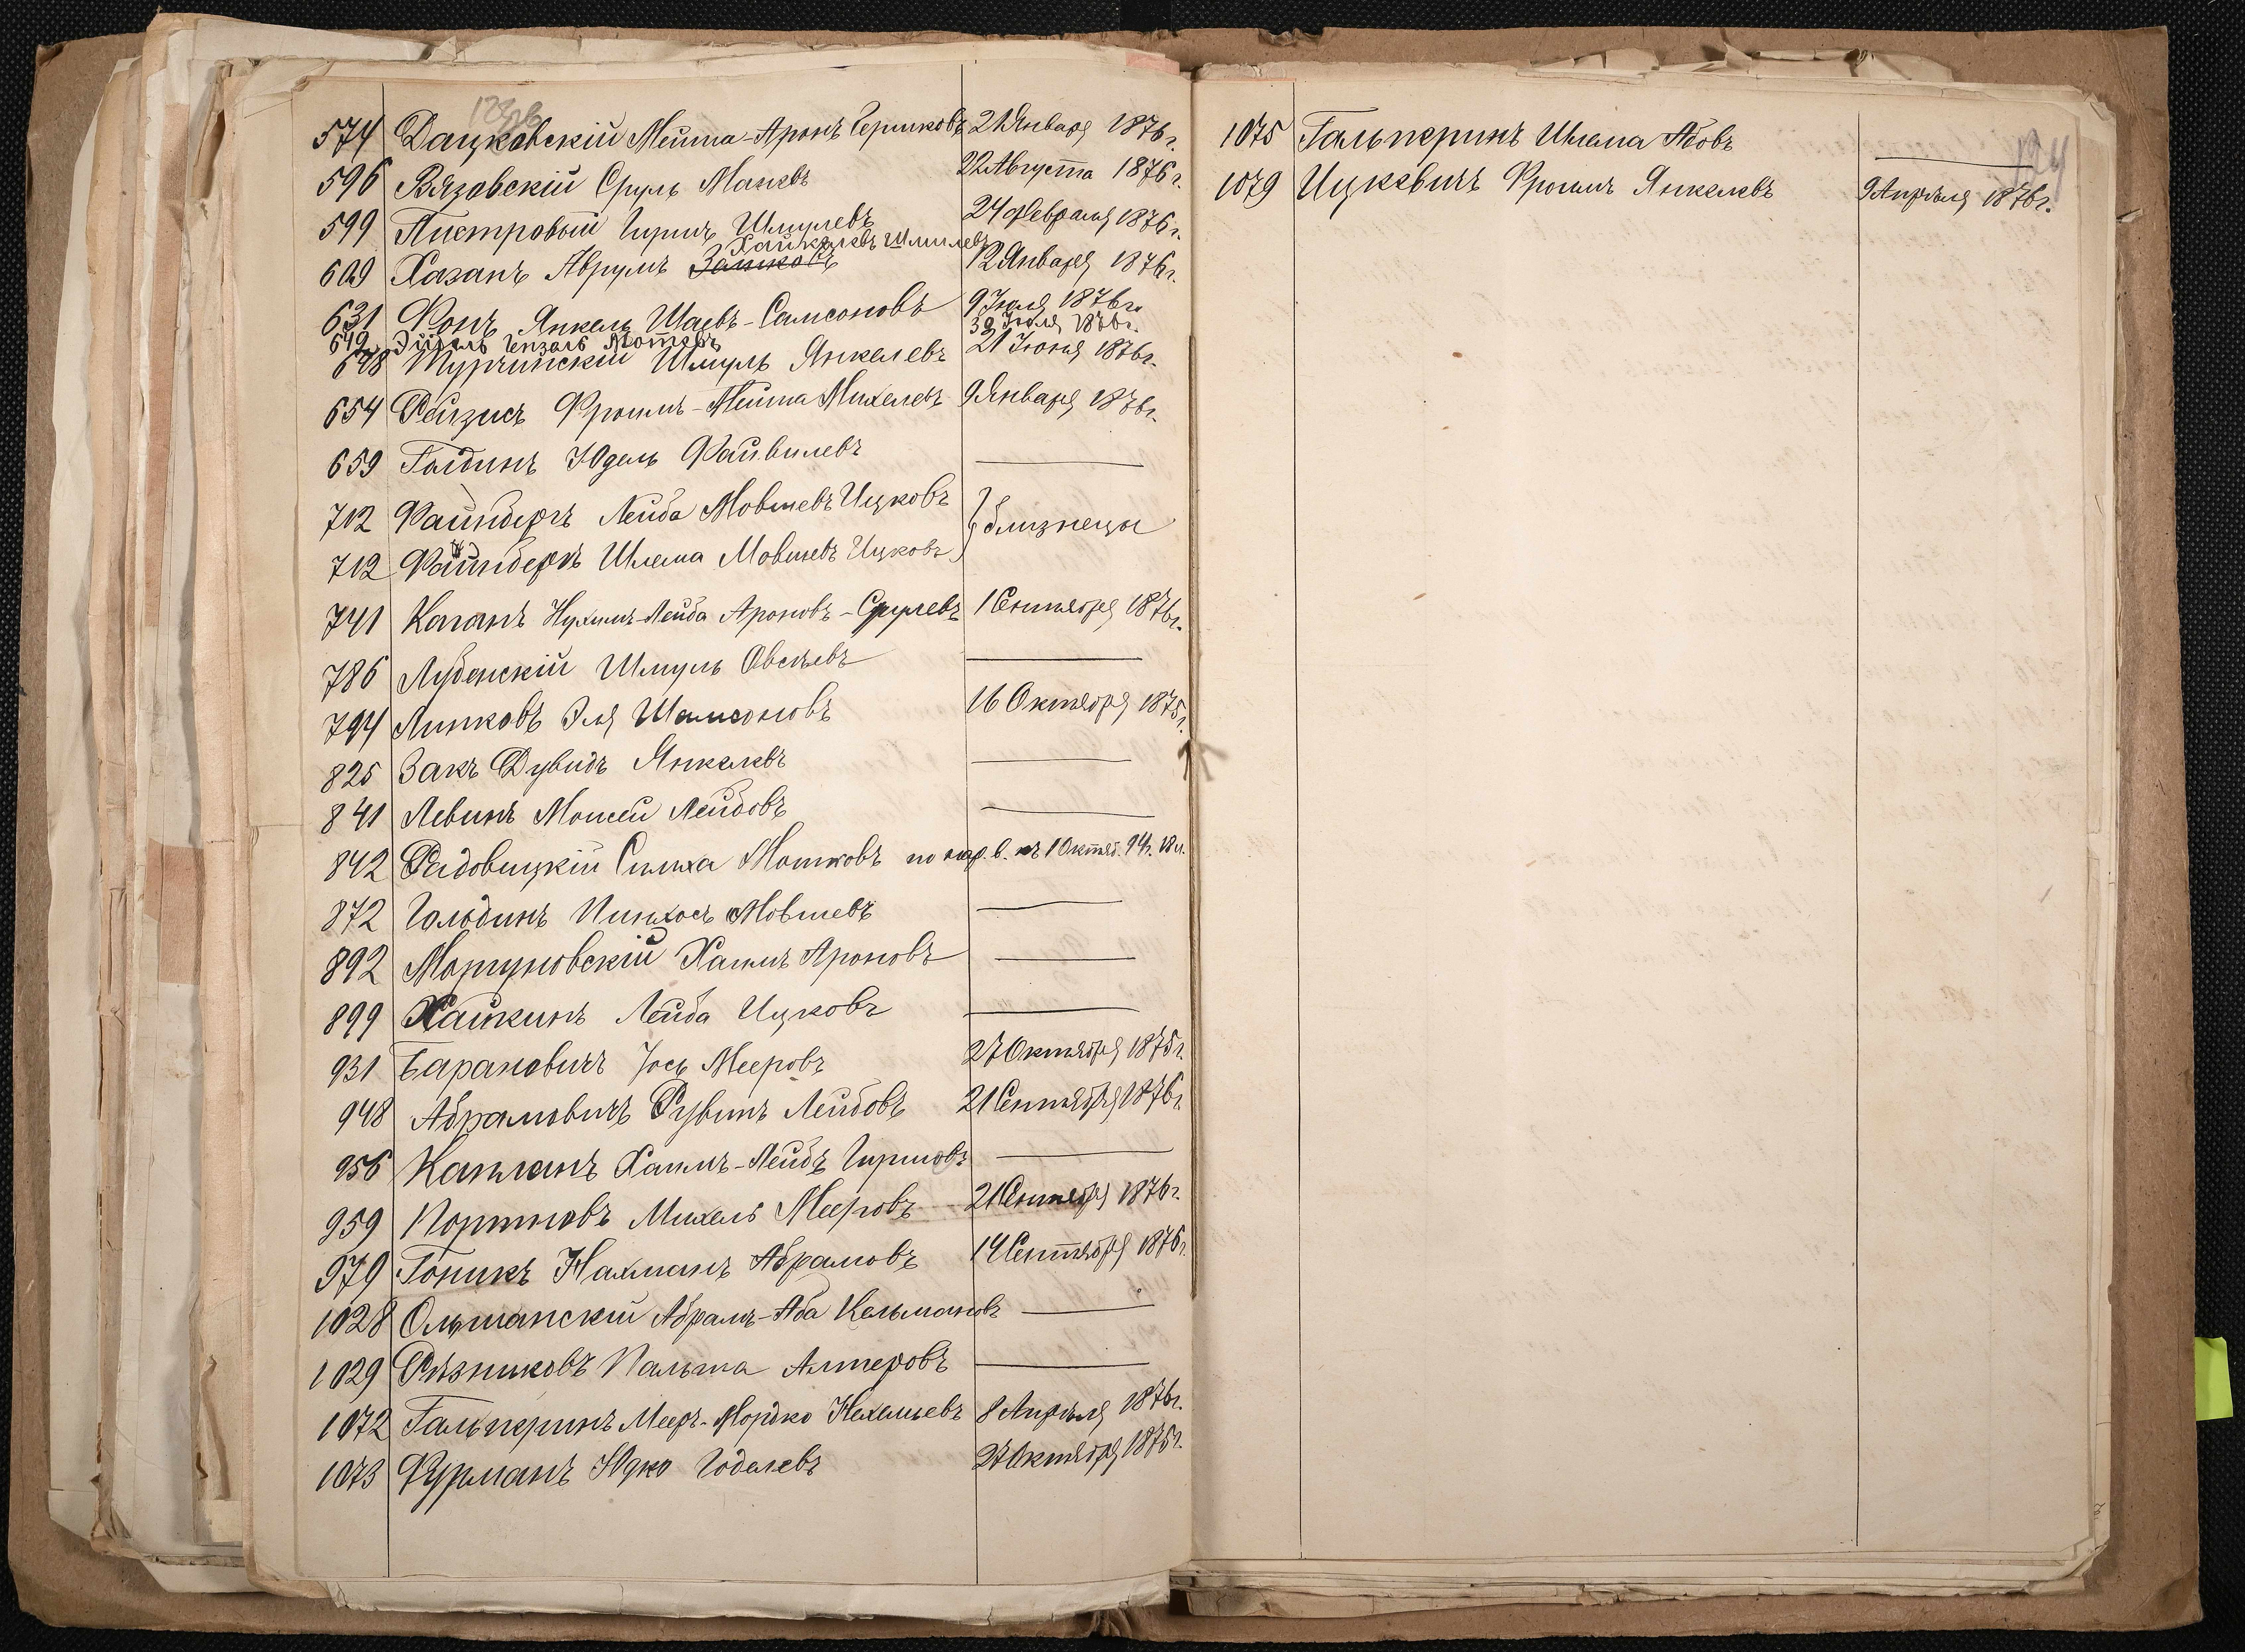 574 Дацковскій Мейта-Аронъ Гершковъ 21 Января 1876 г.
596 Вязовскій Сруль Маневъ 22 Августа 1876 г.
599 Пистровый Гиршъ Шмулевъ 24 Февраля 1876 г.
Хайкелевъ Шмилевъ
609 Хазанъ Аврумъ Залковъ 12 Января 1876 г.
631 Фонъ Янкель Шаевъ-Самсоновъ 9 Іюля 1876 г.
649 Гензель Мотевъ Іюля 1876 г.
648 Турчинскій Шмуль Янкелевъ 21 Іюня 1876 г.
654 Рейзисъ Фроимъ-Мейта Михелевъ 9 Января 1876 г.
659 Голдинъ Юдель Файвилевъ
712 Файнбергъ Лейба Мовшевъ Ицковъ } близнецы
712 Файнбергъ Шлема Мовшевъ Ицковъ
741 Каганъ Нухимъ-Лейба Ароновъ-Срулевъ 1 Сентября 1876 г.
786 Лубенскій Шмуль Овсѣевъ
794 Липковъ Эля Шамсоновъ 16 Октября 1875 г.
825 Закъ Дувидъ Янкелевъ
841 Левинъ Моисей Лейбовъ
842 Радовицкій Симха Мошковъ по нар. в. къ 1 Октяб. 94 г. 18 л.
872 Гольдинъ Пинхосъ Мовшевъ
892 Моргуновскій Хаимъ Ароновъ
899 Хайкинъ Лейба Ицковъ
931 Барановичъ Іось Мееровъ 27 Октября 1875 г.
948 Абрамовичъ Рувинъ Лейбовъ 21 Сентября 1876 г.
956 Капланъ Хаимъ-Лейбъ Гиршовъ
959 Портновъ Михель Мееровъ 21 Сентября 1876 г.
979 Гоникъ Нахманъ Абрамовъ 14 Сентября 1876 г.
1028 Ольшанскій Абрамъ-Аба Кельмановъ
1029 Рѣзниковъ Пальта Алтеровъ
1072 Гальперинъ Мееръ-Мордко Нехемьевъ 8 Апрѣля 1876 г.
1073 Фурманъ Юдко Годелевъ 27 Октября 1875 г.
1075 Гальперинъ Шлема Абовъ
1079 Ицкевичъ Фроимъ Янкелевъ 9 Апрѣля 1876 г.